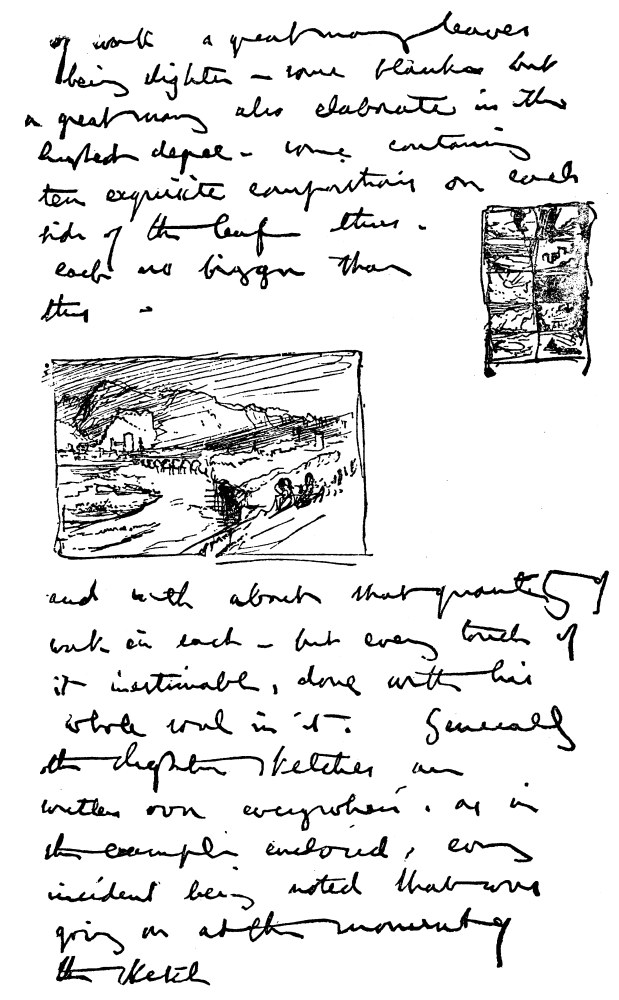 of work a great many leaves
being slighter – some blanks but
a great many also elaborate in the
highest degree – some containing
ten exquisite compositions on each
side of the leaf thus –
each no bigger than
this –
and with about that quantity of
work in each – but every touch of
it inestimable, done with his
whole soul in it. Generally
the slighter sketches are
written over everywhere, as in
the example enclosed, every
incident being noted that was
going on at the moment of
the sketch